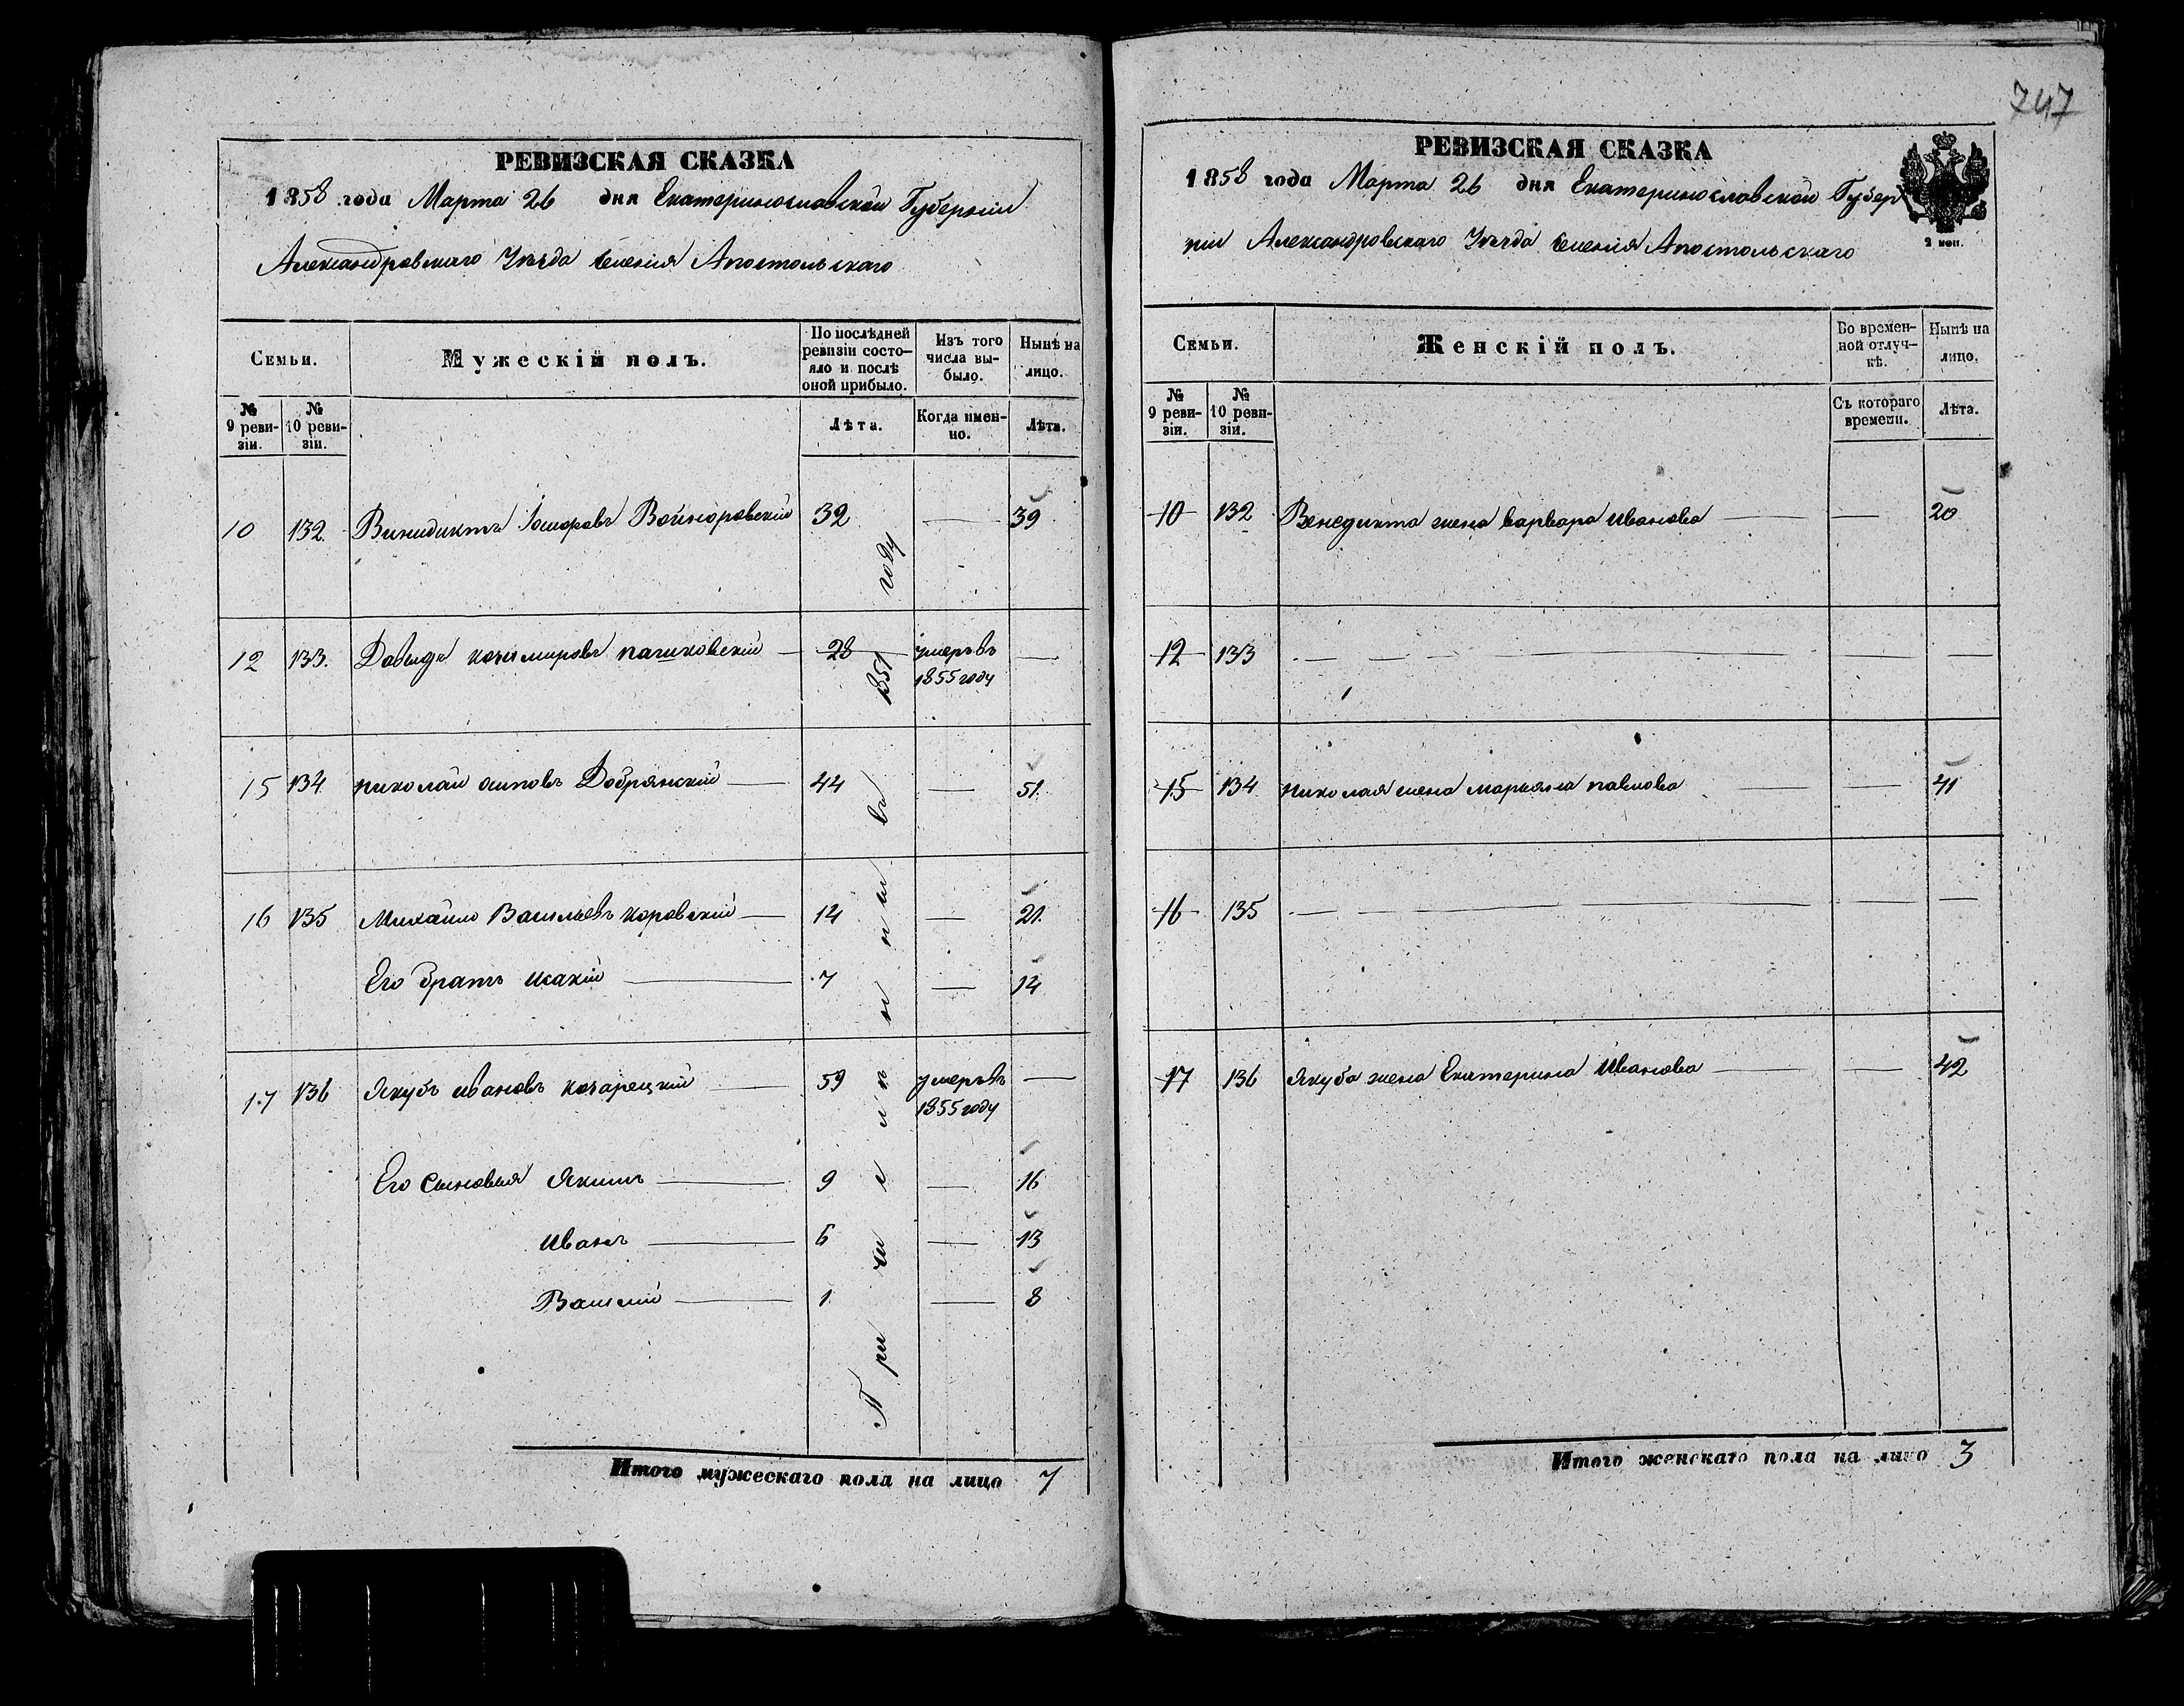 747
РЕВИЗСКАЯ СКАЗКА
1858 года Марта 26 дня Екатеринославской Губерніи
Александровскаго Уѣзда Селенія Апостольскаго
Семьи.
Мужескій полъ.
По послѣдней ревизіи состояло и послѣ оной прибыло.
Изъ того числа выбыло.
Нынѣ на лицо.
№ 9 ревизіи.
№ 10 ревизіи.
Лѣта.
Когда именно.
Лѣта.
10 132. Винидиктъ Войноровскій 32 — 39
12 133. Давыдъ Казимировъ Пашковскій — 28 умеръ въ 1855 году —
15 134 николай осиповъ Добрянскій — 44 — 51.
16 135 Михайло Васильевъ Коровскій — 14 — 21.
Его братъ Исакій — 7 — 14
17 136 Якубъ ивановъ кочарецкій — 59 умеръ въ 1855 году —
Его сыновья Якимъ — 9 — 16
Иванъ — 6 — 13
Василій — 1 — 8
Причислены въ 1851 году
Итого мужескаго пола на лицо 7
РЕВИЗСКАЯ СКАЗКА
1858 года Марта 26 дня Екатеринославской Губер
ніи Александровскаго Уѣзда Селенія Апостольскаго
2 коп.
Семьи.
Женскій полъ.
Во временной отлучкѣ.
Нынѣ на лицо.
№ 9 ревизіи.
№ 10 ревизіи.
Съ котораго времени.
Лѣта.
10 132 Венедикта жена варвара Иванова — — 20
12 133 — — —
15 134 николая жена марьяна павлова — — 41
16 135 — — —
17 136 Якуба жена Екатерина Иванова — — 42
Итого женскаго пола на лицо 3